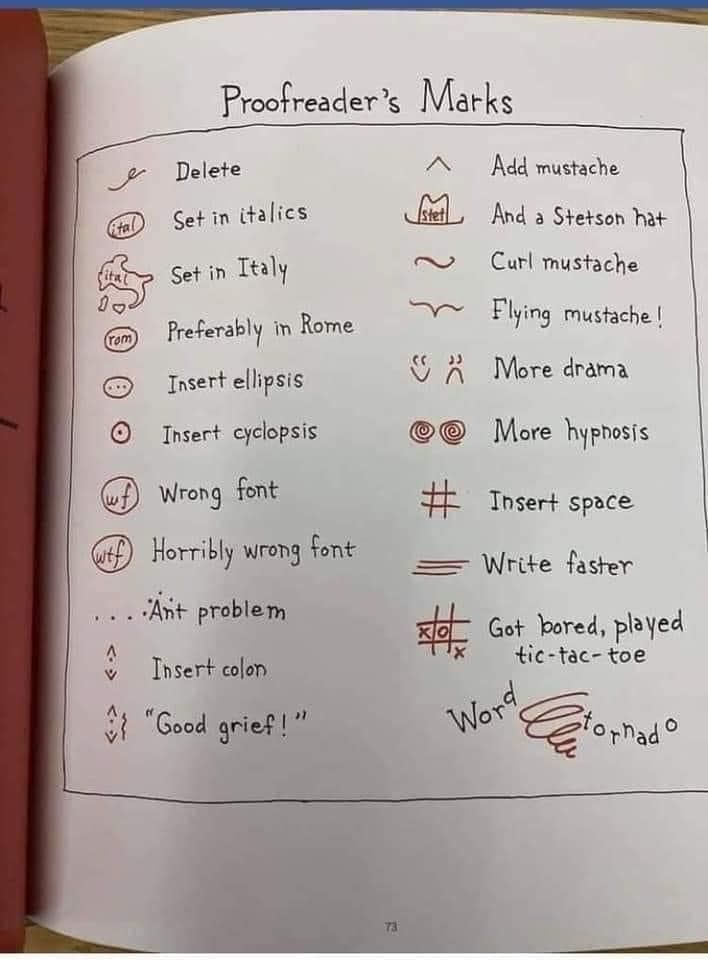 Proofreader's Marks
Delete
ital Set in italics
ital Set in Italy
rom Preferably in Rome
Insert ellipsis
Insert cyclopsis
wf Wrong font
wtf Horribly wrong font
.... Ant problem
Insert colon
"Good grief!"
^ Add mustache
stet And a Stetson hat
~ Curl mustache
Flying mustache!
More drama
More hypnosis
# Insert space
Write faster
xo Got bored, played
x tic-tac-toe
Word tornado
73